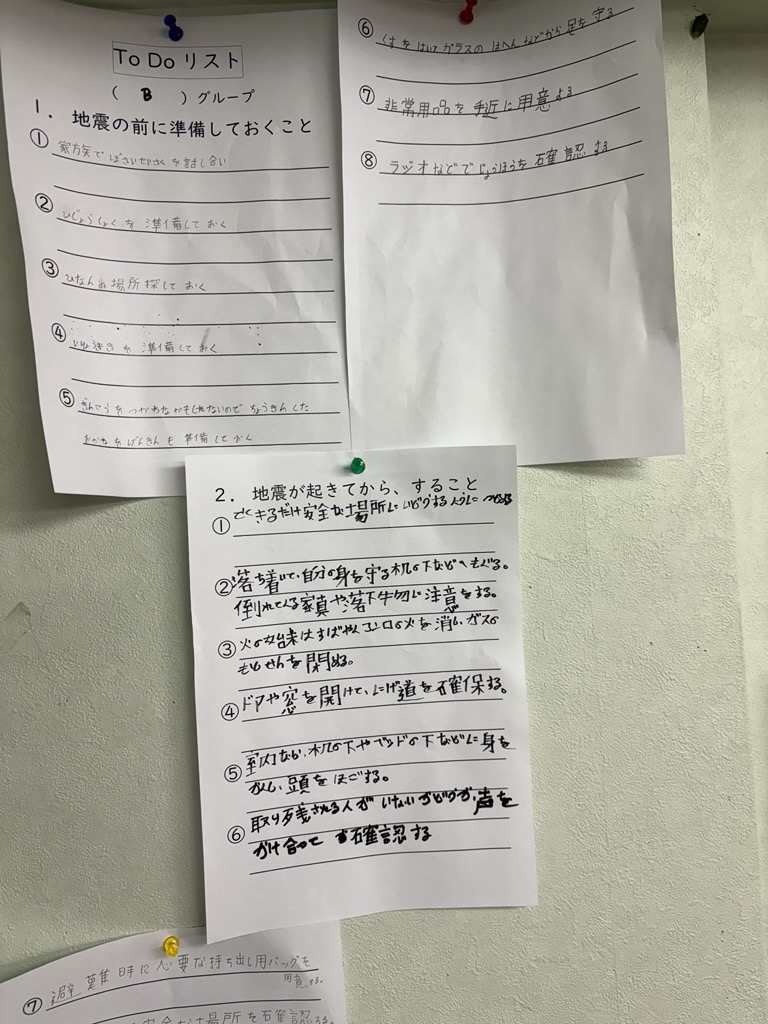 To Do リスト
( B ) グループ
1. 地震の前に準備しておくこと
① 家族で ぼさいたさく を話し合い
② ひじょうしょく を 準備して おく
③ ひなんの 場所 探して おく
④ 準備して おく
⑤ つかわなかもしれないので ちょうきんした
おかねや げんきん も 準備して おく
⑥ くすを はいて ガラスの はへん などから 足を 守る
⑦ 非常用品を 手近に 用意する
⑧ ラジオなどで じょうほうを 確認する
2. 地震が起きてから、すること
① できるだけ安全な場所に いどうする ように
② 落ち着いて、自分の身を守る机の下などへもぐる。
倒れてくる家具や落下物に注意をする。
③ 火の始末はすばやく コンロの火を消し、ガスの
もとせんを閉める。
④ ドアや窓を開けて、にげ道を確保する。
⑤ 室内なら、机の下やベッドの下などに身を
かくし、頭をほごする。
⑥ 取り残される人が いないかどうか、声を
かけ合って 確認する
⑦ 避難時に必要な持ち出し用バッグを
用意する。
安全な場所を確認する。